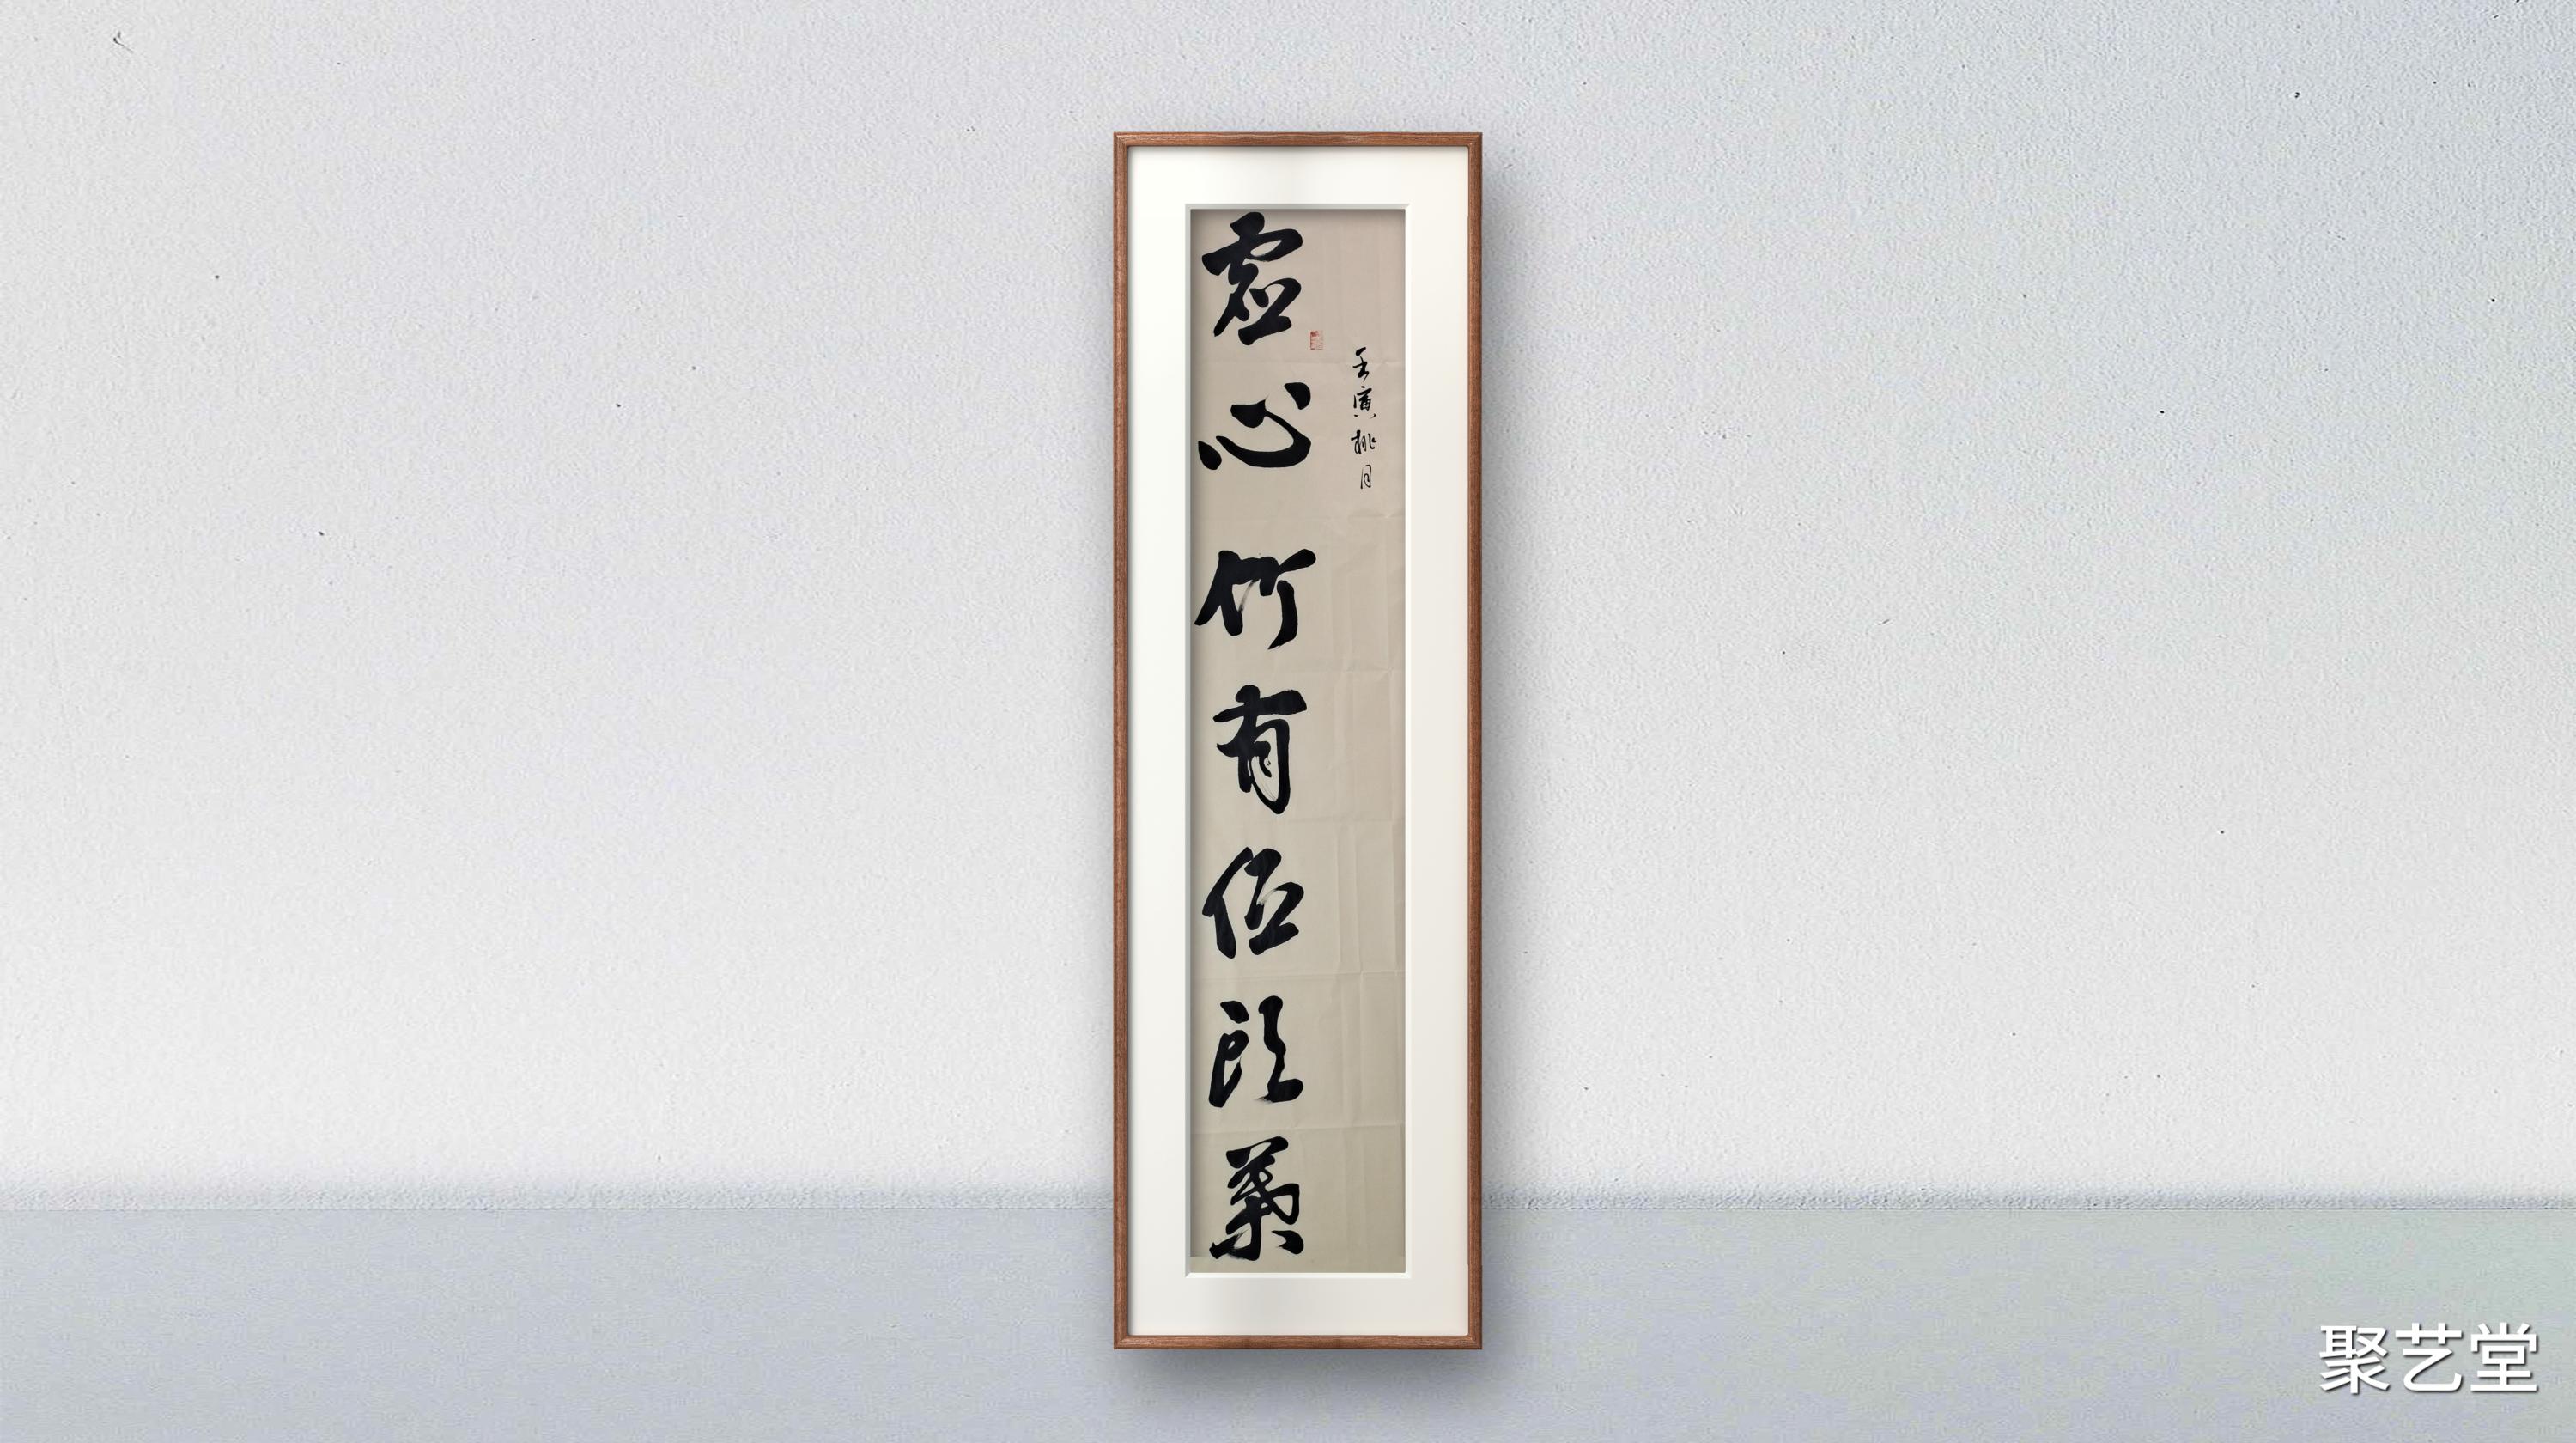 壬寅桃月
虚心竹有低头叶
聚艺堂